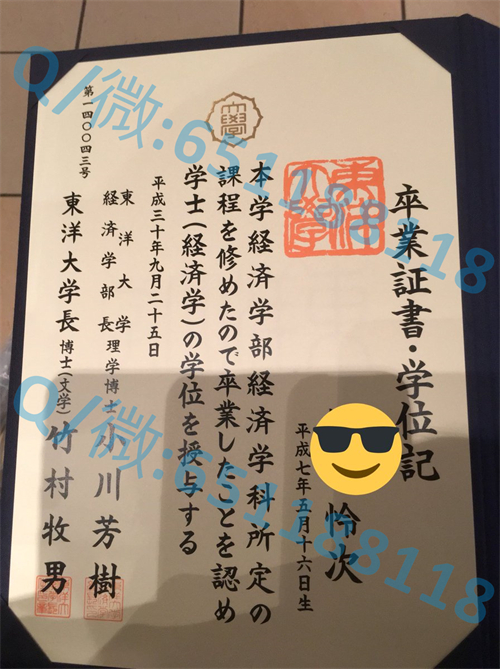 卒業証書・学位記
東洋大学
怜次
平成七年五月十六日生
本学経済学部経済学科所定の
課程を修めたので卒業したことを認め
学士(経済学)の学位を授与する
平成三十年九月二十五日
東洋大学
経済学部長 理学博士 小川芳樹
東洋大学長 博士(文学) 竹村牧男
第一四〇〇四三号
大學
Q/微:651188118
Q/微:651188118